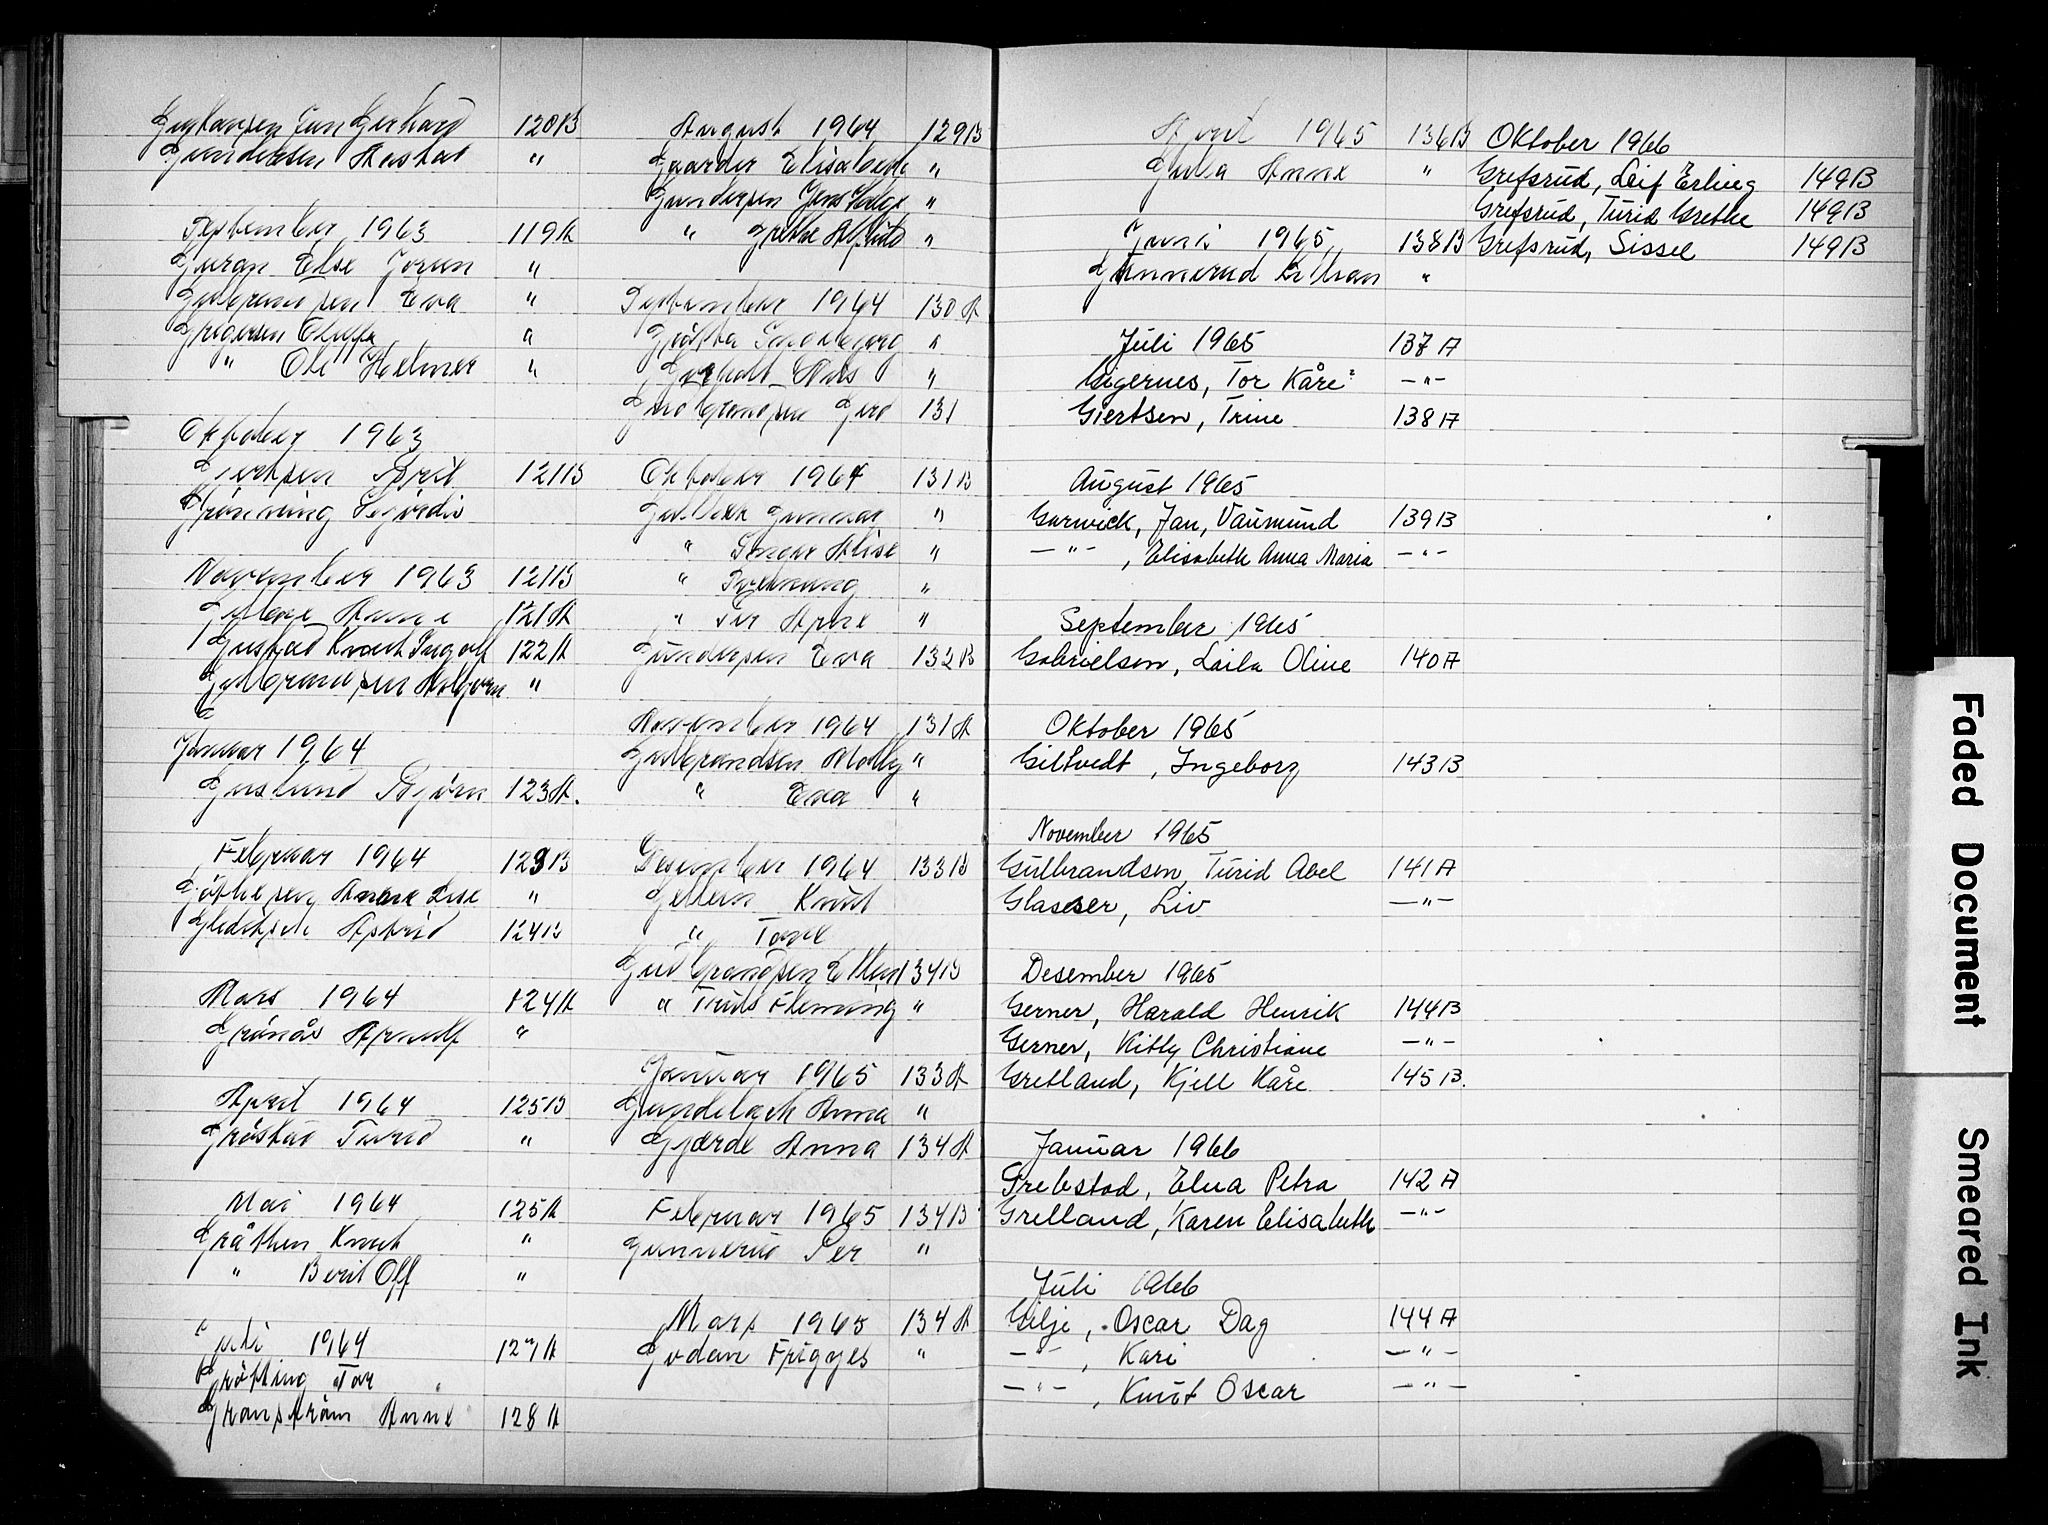 Gustavsen Jan Gerhard 120B
Gundersen Harstad "
September 1963 119A
Guran Else Jorun "
Gulbrandsen Eva "
Gregersen "
" Ole Helmer "
Oktober 1963
Giertsen Berit 121B
Grönning Sigurdis
November 1963 121B
Anne 121A
Gustad Knut Ingolf 122A
Gulbrandsen "
Januar 1964
Guslund Björn 123A.
Februar 1964 123B
Anne Lise "
Gleditsch Astrid 124B
Mars 1964 124A
Grönås Arnulf "
April 1964 125B
Gröstad Turid "
Mai 1964 125A
Gråthen Knut "
" Berit Off "
Juli 1964 127A
Gröfting Tor "
Granström Anne 128A
August 1964 129B
Gaarder Elisabeth "
Gundersen Jens Helge "
" Grethe Asfrid "
September 1964 130A
Ingeborg "
Nils "
Gulbrandsen Gerd 131
Oktober 1964 131B
Gunnar "
" Inger Alise "
" "
" Per Arne "
Gundersen Eva 132B
November 1964 131A
Gulbrandsen Molly "
" Eva "
Desember 1964 133B
Gellein Knut
" Tove
Gulbrandsen Ellen 134B
" Truls Flemming "
Januar 1965 133A
Gundelach Anna "
Gjærde Anna 134A
Februar 1965 134B
Gunnerud Per "
Mars 1965 134A
Godan Frigges "
April 1965 136B
Gulla Anne "
Juni 1965 138B
Gunnerud "
Juli 1965 137A
Gigernes, Tor Kåre —"—
Giertsen, Trine 138A
August 1965
Garwick, Jan, Vaumund 139B
—"— , Elisabeth Anna Maria —"—
September 1965
Gabrielsen, Laila Oline 140A
Oktober 1965
Giltvedt, Ingeborg 143B
November 1965
Gulbrandsen, Turid Abel 141A
Glasser, Liv —"—
Desember 1965
Gerner, Harald Henrik 144B
Gerner, Kitty Christiane —"—
Gretland, Kjell Kåre 145B.
Januar 1966
Grebstad, Elna Petra 142A
Grelland, Karen Elisabeth —"—
Juli 1966
Gilje, Oscar Dag 144A
—"— , Kari —"—
—"— , Knut Oscar —"—
Oktober 1966
Grefsrud, Leif Erling 149B
Grefsrud, Turid Grethe 149B
Grefsrud, Sissel 149B
Faded Document
Smeared Ink